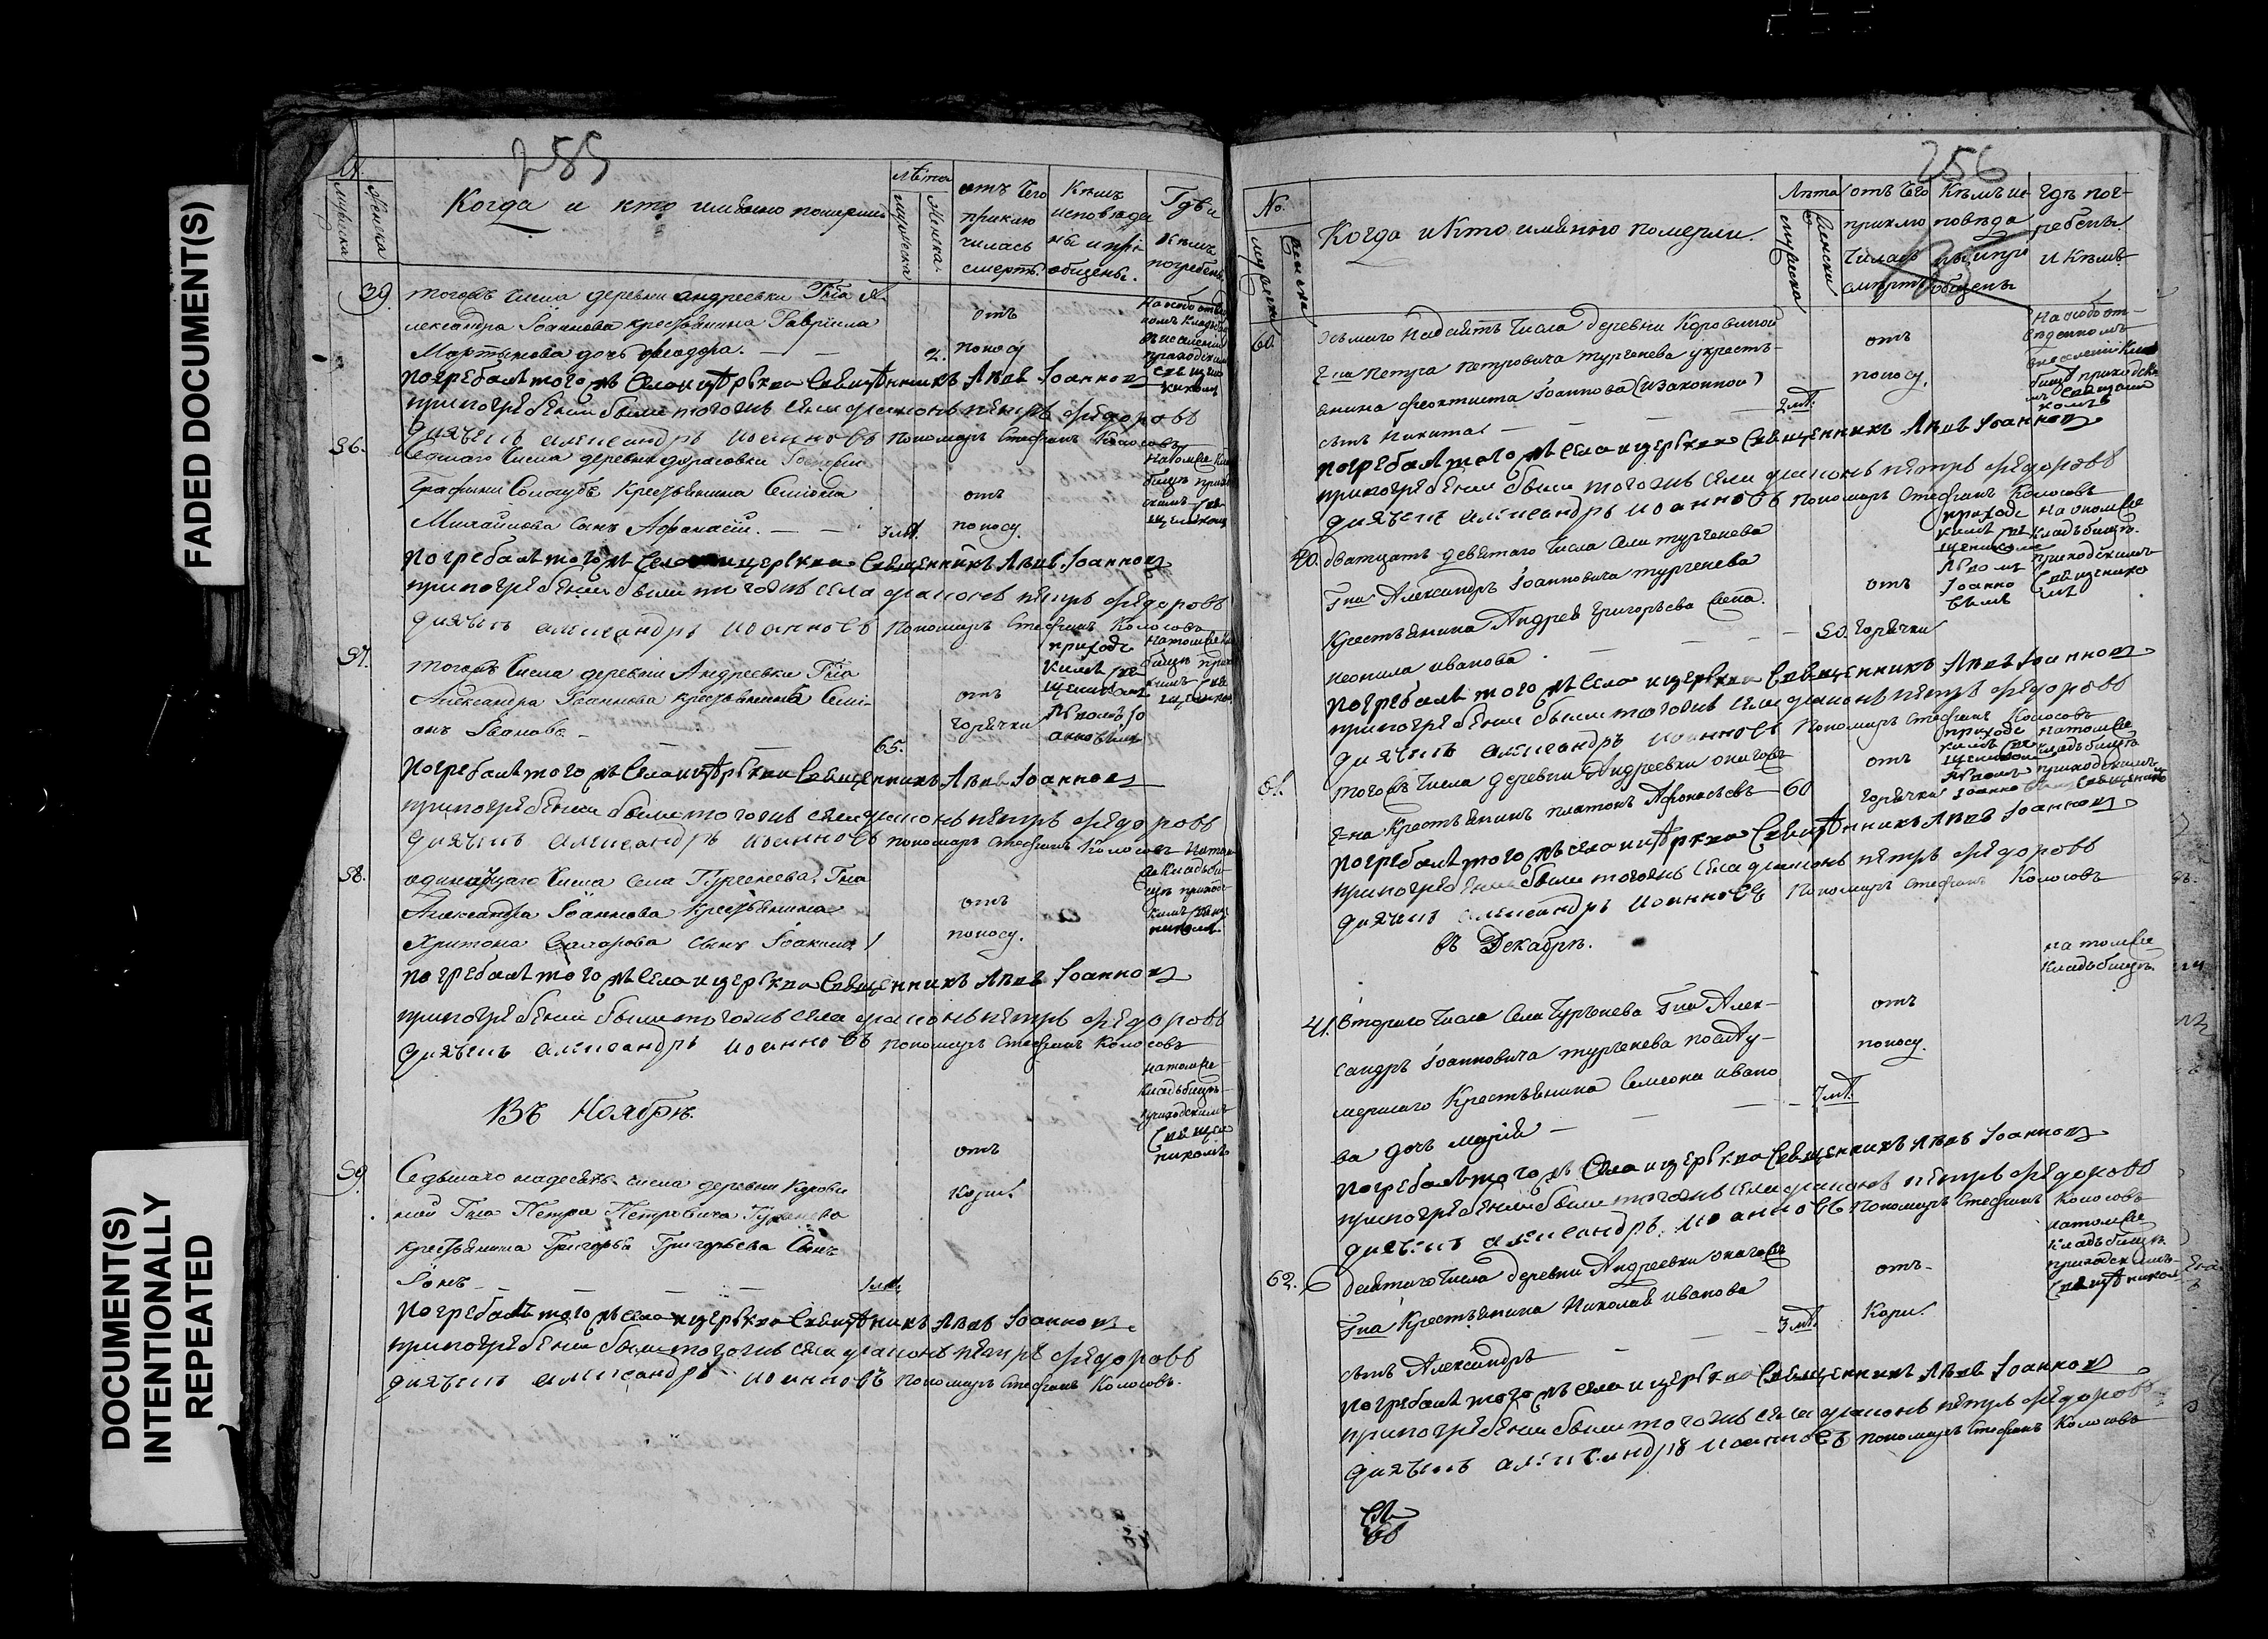 FADED DOCUMENT(S)
DOCUMENT(S)
INTENTIONALLY
REPEATED
255
№.
мужеска
Женска
Когда и кто именно померли
лѣта
мужеска
Женска
отъ Чего
приклю
чилась
смерть.
Кѣмъ
исповѣда
ны и прі-
общены.
Гдѣ и
Кѣмъ
погребены
39.
тогожъ Числа деревни андреевки Гна А-
лександра Іоаннова крестьянина Гавріила
Мартынова дочь Феодора.
2.
отъ
поносу
погребалъ того жъ Села и церкви Священникъ Левъ Іоанновъ
при погребении были тогожъ села диаконъ петръ федоровъ
дьячекъ александръ иоанновъ пономарь Стефанъ Колосовъ
56.
Числа деревни
Графини Сологубъ Крестьянина Семиона
Михайлова Сынъ Афанасий.
3 лѣт.
отъ
поносу.
погребалъ того жъ Села и церкви Священникъ Левъ Іоанновъ
при погребении были тогожъ села диаконъ петръ федоровъ
дьячекъ александръ иоанновъ пономарь Стефанъ Колосовъ
57.
тогожъ Числа деревни Андреевки Гна
Александра Іоаннова крестьянинъ Семи-
онъ Ивановъ
65.
отъ
Горячки
погребалъ того жъ Села и церкви Священникъ Левъ Іоанновъ
при погребении были тогожъ села диаконъ петръ федоровъ
дьячекъ александръ иоанновъ пономарь Стефанъ Колосовъ
58.
Числа Села Тургенева Гна
Александра Іоаннова Крестьянина
Харитона Захарова сынъ Іоакимъ
1
отъ
поносу.
погребалъ того жъ Села и церкви Священникъ Левъ Іоанновъ
при погребении были тогожъ села диаконъ петръ федоровъ
дьячекъ александръ иоанновъ пономарь Стефанъ Колосовъ
Въ Ноябрѣ.
на томже
кладбищѣ
приходскимъ
Священ
никомъ
59.
Седьмаго надесять числа деревни Корови
ной Гна Петра Петровича Тургенева
крестьянина Григорья Григорьева Сынъ
отъ
Кори.
погребалъ того жъ Села и церкви Священникъ Левъ Іоанновъ
при погребении были тогожъ села диаконъ петръ федоровъ
дьячекъ александръ иоанновъ пономарь Стефанъ Колосовъ.
256
№.
мужеска
женска
Когда и Кто имянно померли.
Лѣта
мужеска
женски
отъ Чего
приклю
чилась
смерть
Кѣмъ ис
повѣда
ны и при
общены
гдѣ пог-
ребены
и Кѣмъ
60.
осьмаго Надесять Числа деревни Коровиной
Г-на Петра петровича тургенева у крестья-
янина Феоктиста Іоаннова (изаконной)
сынъ Никита
2 лѣт.
отъ
поносу.
погребалъ того жъ Села и церкви Священникъ Левъ Іоанновъ
при погребении были тогожъ села диаконъ петръ федоровъ
дьячекъ александръ иоанновъ пономарь Стефанъ Колосовъ
40.
дватцать девятаго Числа Села тургенева
Гна Александръ Іоанновича тургенева
Крестьянина Андрея Григорьева Жена
неонила иванова
50.
отъ
Горячки
погребалъ того жъ Села и церкви Священникъ Левъ Іоанновъ
при погребении были тогожъ села диаконъ петръ федоровъ
дьячекъ александръ иоанновъ Пономарь Стефанъ Колосовъ
61.
тогожъ Числа деревни Андреевки онагожъ
Г-на Крестьянинъ платонъ Афонасьевъ
60
отъ
Горячки
погребалъ того жъ села и церкви Священникъ Левъ Іоанновъ
при погребении были тогожъ села диаконъ петръ федоровъ
дьячекъ александръ иоанновъ Пономарь Стефанъ Колосовъ
въ Декабрѣ.
на томже
Кладьбищѣ.
41.
Втораго Числа Села Тургенева Гна Алек-
сандръ Іоанновича тургенева поелѣу-
мершаго Крестьянина Семиона ивано
ва дочь марія
7 лѣт.
отъ
поносу.
погребалъ того жъ Села и церкви Священникъ Левъ Іоанновъ
при погребении были тогожъ села диаконъ петръ федоровъ
дьячекъ александръ иоанновъ Пономарь Стефанъ Колосовъ
62.
десятаго Числа деревни Андреевки онагожъ
Гна Крестьянина Николая иванова
сынъ Александръ
3 лѣт.
отъ
Кори.
на томже
Кладьбищѣ
приходскимъ
Священником
погребалъ того жъ села и церкви Священникъ Левъ Іоанновъ
при погребении были тогожъ села диаконъ петръ федоровъ
дьячекъ александръ иоанновъ пономарь Стефанъ Колосовъ